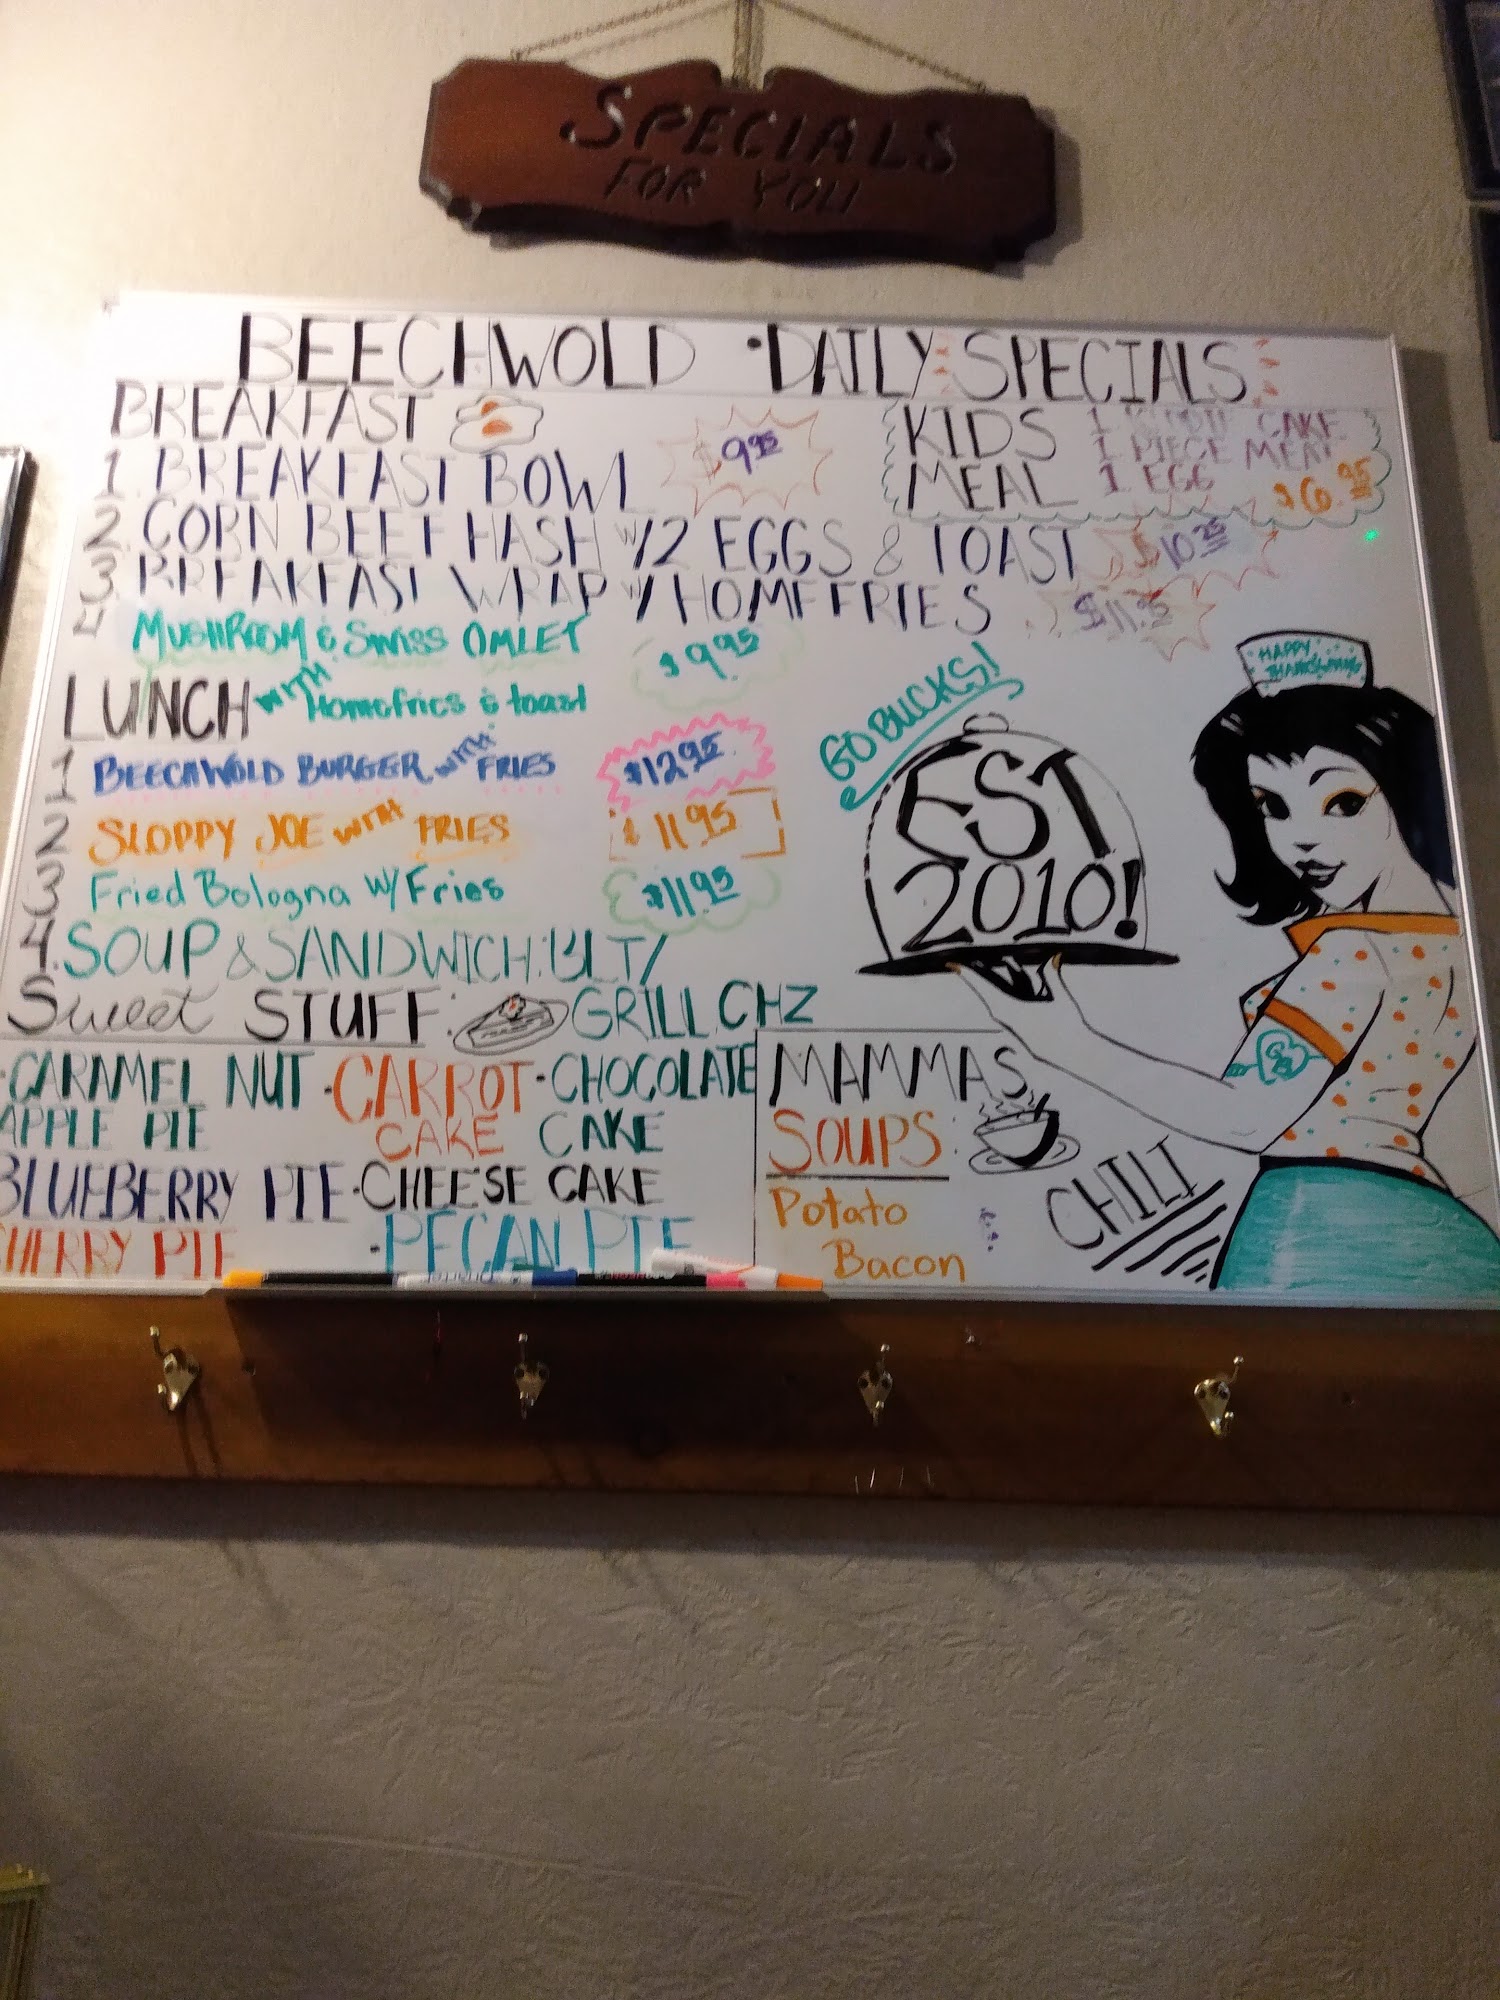 SPECIALS
FOR YOU
BEECHWOLD • DAILY SPECIALS
BREAKFAST
1. BREAKFAST BOWL $9.95
2. CORN BEEF HASH w/2 EGGS & TOAST $10.25
3. BREAKFAST WRAP w/ HOMEFRIES $11.95
4 MUSHROOM & SWISS OMLET $9.95
WITH Homefries & toast
KIDS
MEAL
1 CAKE
1 PIECE MEAT
1 EGG
$6.95
LUNCH
1 BEECHWOLD BURGER WITH FRIES $12.95
2 SLOPPY JOE WITH FRIES $11.95
3 Fried Bologna w/ Fries $11.95
4. SOUP & SANDWICH: BLT/
GRILL CHZ
GO BUCKS!
EST
2010!
HAPPY
THANKSGIVING
Sweet STUFF:
• CARAMEL NUT
APPLE PIE
• CARROT
CAKE
• CHOCOLATE
CAKE
BLUEBERRY PIE
• CHEESE CAKE
CHERRY PIE
• PECAN PIE
MAMMAS
SOUPS:
Potato
Bacon
CHILI